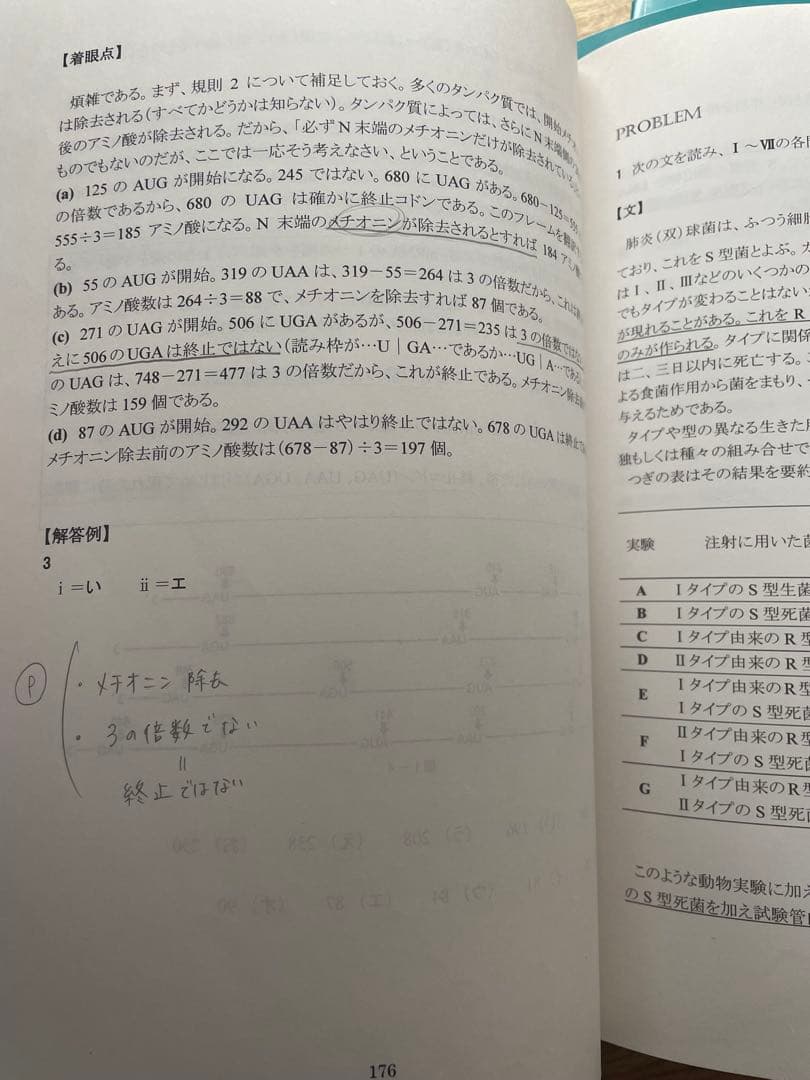 【着眼点】
煩雑である。まず、規則 2 について補足しておく。多くのタンパク質では、開始メチオ
は除去される(すべてかどうかは知らない)。タンパク質によっては、さらに N 末端側の
後のアミノ酸が除去される。だから、「必ず N 末端のメチオニンだけが除去されている
ものでもないのだが、ここでは一応そう考えなさい、ということである。
(a) 125 の AUG が開始になる。245 ではない。680 に UAG がある。680-125=555
の倍数であるから、680 の UAG は確かに終止コドンである。このフレームを翻訳
555÷3=185 アミノ酸になる。N 末端のメチオニンが除去されるとすれば 184 アミノ酸
る。
(b) 55 の AUG が開始。319 の UAA は、319-55=264 は 3 の倍数だから、これは終
ある。アミノ酸数は 264÷3=88 で、メチオニンを除去すれば 87 個である。
(c) 271 の UAG が開始。506 に UGA があるが、506-271=235 は 3 の倍数ではな
えに 506 の UGA は終止ではない(読み枠が…U|GA…であるか…UG|A…である
の UAG は、748-271=477 は 3 の倍数だから、これが終止である。メチオニン除去
ミノ酸数は 159 個である。
(d) 87 の AUG が開始。292 の UAA はやはり終止ではない。678 の UGA は終止
メチオニン除去前のアミノ酸数は(678-87)÷3=197 個。
【解答例】
3
ⅰ=い ⅱ=エ
P
・メチオニン 除去
・3の倍数でない
||
終止ではない
176
PROBLEM
1 次の文を読み、Ⅰ～Ⅶの各問
【文】
肺炎(双)球菌は、ふつう細胞
ており、これを S 型菌とよぶ。
はⅠ、Ⅱ、Ⅲなどのいくつかの
でもタイプが変わることはない
が現れることがある。これを R
のみが作られる。タイプに関係
は二、三日以内に死亡する。
よる食菌作用から菌をまもり、
与えるためである。
タイプや型の異なる生きた
独もしくは種々の組み合せで
つぎの表はその結果を要約
実験 注射に用いた菌
A Ⅰタイプの S 型生菌
B Ⅰタイプの S 型死菌
C Ⅰタイプ由来の R 型
D Ⅱタイプ由来の R 型
E Ⅰタイプ由来の R 型
Ⅰタイプの S 型死菌
F Ⅱタイプ由来の R 型
Ⅰタイプの S 型死菌
G Ⅰタイプ由来の R 型
Ⅱタイプの S 型死菌
このような動物実験に加え
の S 型死菌を加え試験管